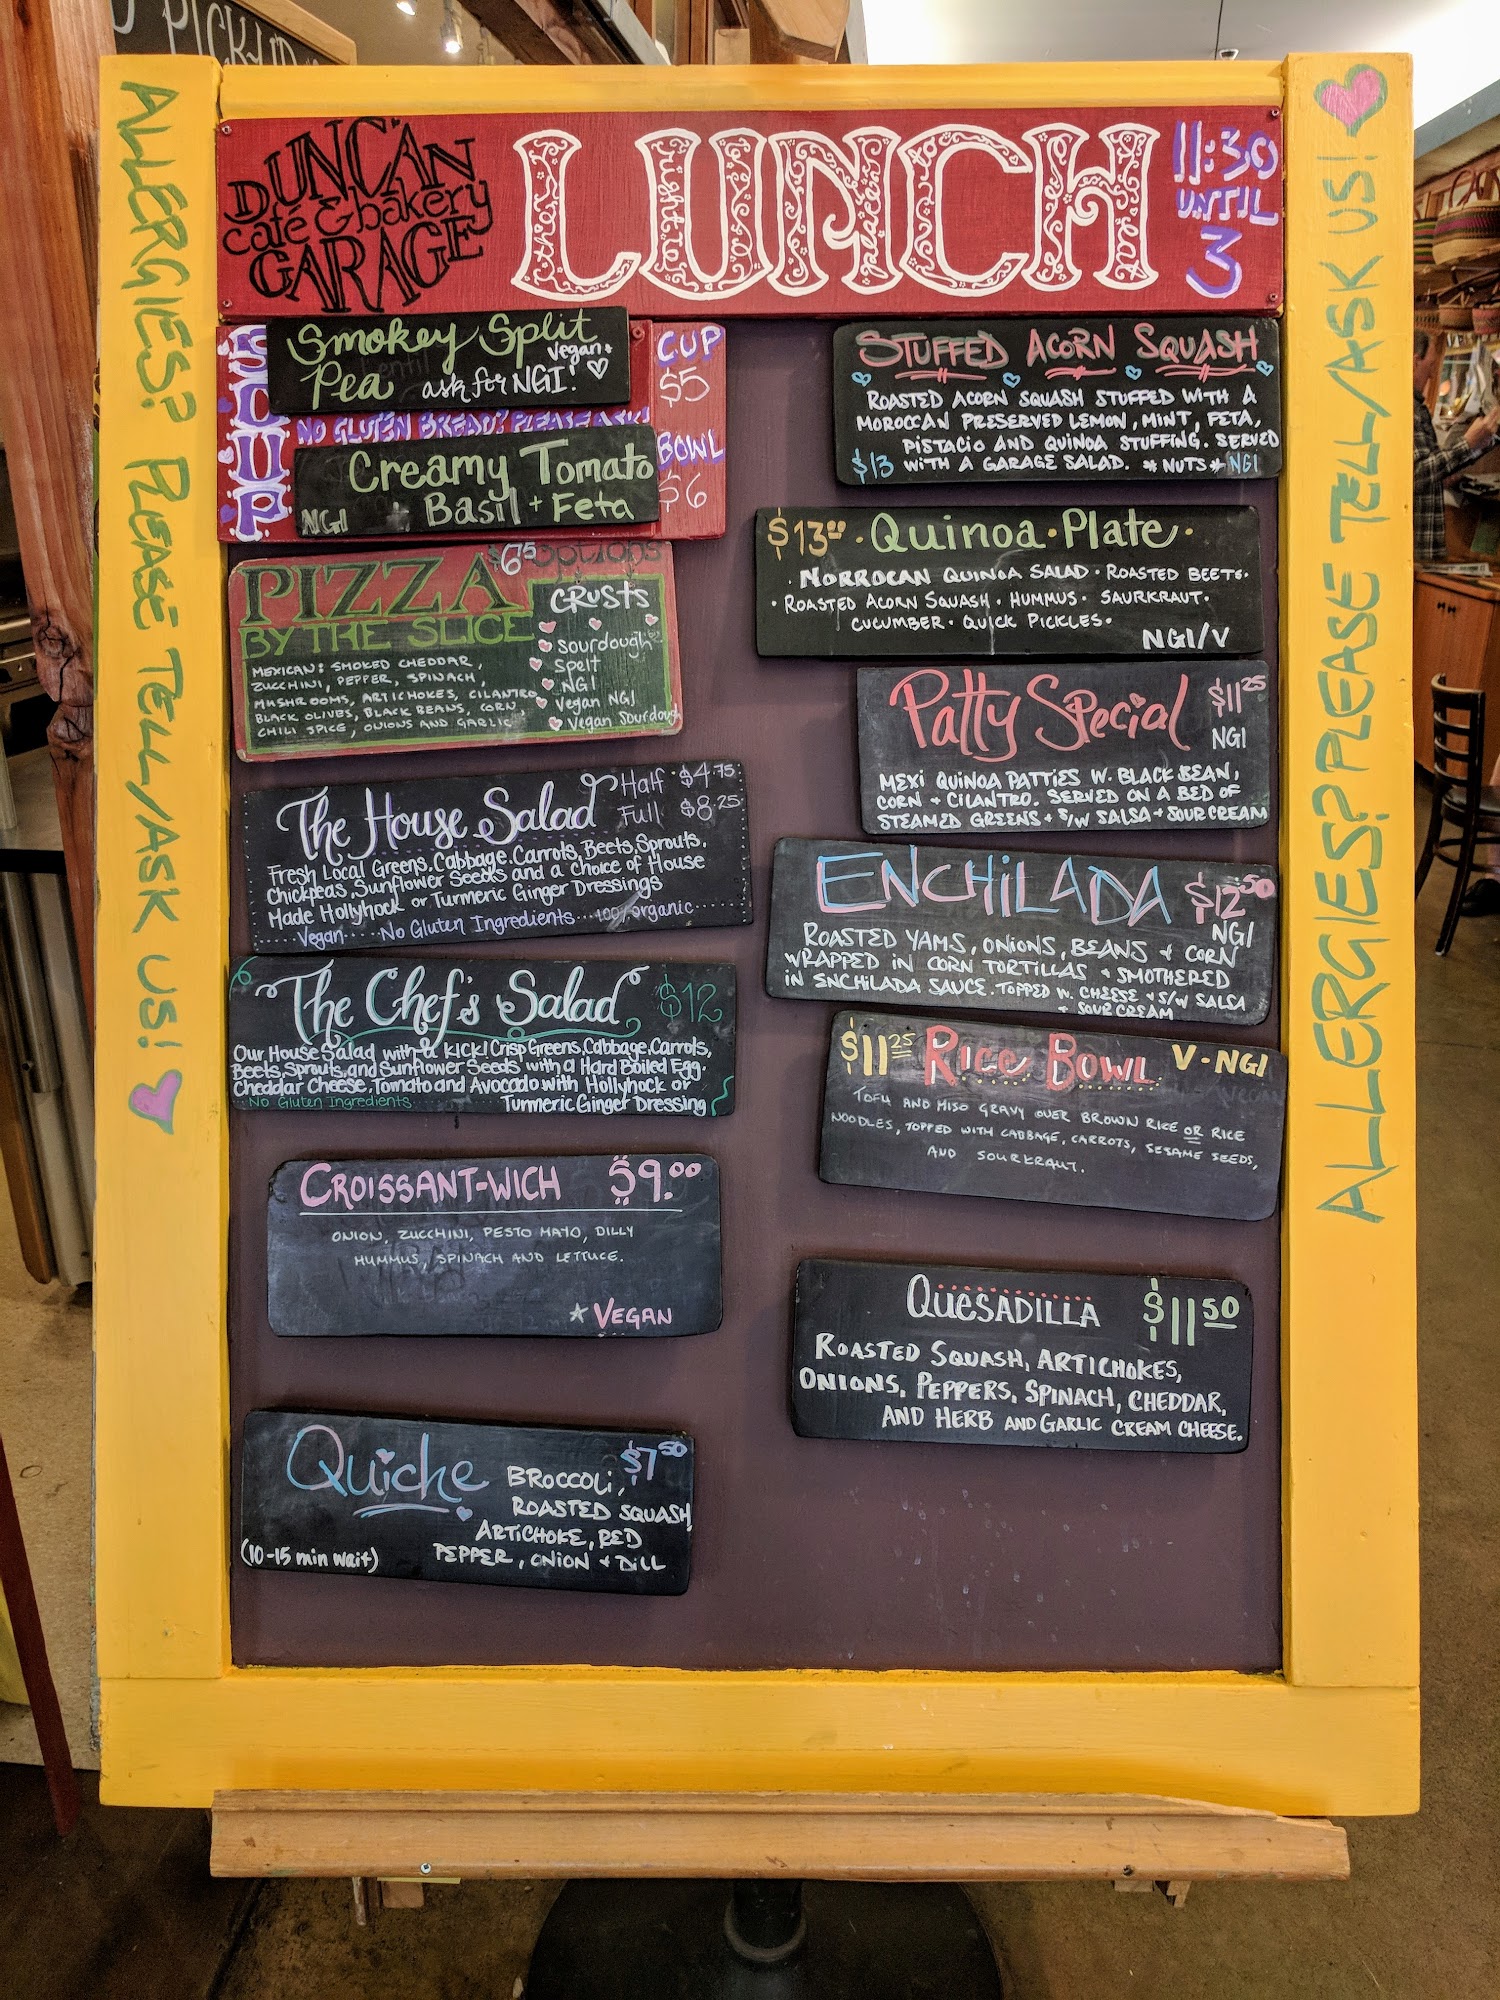 PICKUP
ALLERGIES? PLEASE TELL/ASK US!
DUNCAN
café & bakery
GARAGE
LUNCH
11:30
UNTIL
3
SOUP
Smokey Split
Pea
vegan +
ask for NGI!
CUP
$5
NO GLUTEN BREAD? PLEASE ASK!
Creamy Tomato
Basil + Feta
NGI
BOWL
$6
PIZZA
$6.75 options
BY THE SLICE
MEXICAN: SMOKED CHEDDAR,
ZUCCHINI, PEPPER, SPINACH,
MUSHROOMS, ARTICHOKES, CILANTRO,
BLACK OLIVES, BLACK BEANS, CORN,
CHILI SPICE, ONIONS AND GARLIC
CRUSTS
Sourdough
Spelt
NGI
Vegan NGI
Vegan Sourdough
The House Salad
Half · $4.75
Full $8.25
Fresh Local Greens, Cabbage, Carrots, Beets, Sprouts,
Chickpeas, Sunflower Seeds and a Choice of House
Made Hollyhock or Turmeric Ginger Dressings
Vegan.... No Gluten Ingredients....100% organic....
The Chef's Salad
$12
Our House Salad with a KICK! Crisp Greens, Cabbage, Carrots,
Beets, Sprouts, and Sunflower Seeds with a Hard Boiled Egg,
Cheddar Cheese, Tomato and Avocado with Hollyhock or
No Gluten Ingredients
Turmeric Ginger Dressing
CROISSANT-WICH $9.00
ONION, ZUCCHINI, PESTO MAYO, DILLY
HUMMUS, SPINACH AND LETTUCE.
* VEGAN
Quiche
$7.50
BROCCOLI,
ROASTED SQUASH,
ARTICHOKE, RED
PEPPER, ONION + DILL
(10-15 min wait)
STUFFED ACORN SQUASH
ROASTED ACORN SQUASH STUFFED WITH A
MOROCCAN PRESERVED LEMON, MINT, FETA,
PISTACIO AND QUINOA STUFFING. SERVED
$13 WITH A GARAGE SALAD. *NUTS* NGI
$13.00 · Quinoa · Plate ·
· MORROCAN QUINOA SALAD · ROASTED BEETS ·
· ROASTED ACORN SQUASH · HUMMUS · SAURKRAUT ·
CUCUMBER · QUICK PICKLES ·
NGI/V
Patty Special
$11.25
NGI
MEXI QUINOA PATTIES W. BLACK BEAN,
CORN + CILANTRO. SERVED ON A BED OF
STEAMED GREENS + S/W SALSA + SOUR CREAM
ENCHILADA
$12.50
NGI
ROASTED YAMS, ONIONS, BEANS + CORN
WRAPPED IN CORN TORTILLAS + SMOTHERED
IN ENCHILADA SAUCE. TOPPED W. CHEESE + S/W SALSA
+ SOUR CREAM
$11.25 RICE BOWL V-NGI
TOFU AND MISO GRAVY OVER BROWN RICE OR RICE
NOODLES, TOPPED WITH CABBAGE, CARROTS, SESAME SEEDS,
AND SOURKRAUT.
QUESADILLA $11.50
ROASTED SQUASH, ARTICHOKES,
ONIONS, PEPPERS, SPINACH, CHEDDAR,
AND HERB AND GARLIC CREAM CHEESE.
ALLERGIES? PLEASE TELL/ASK US!